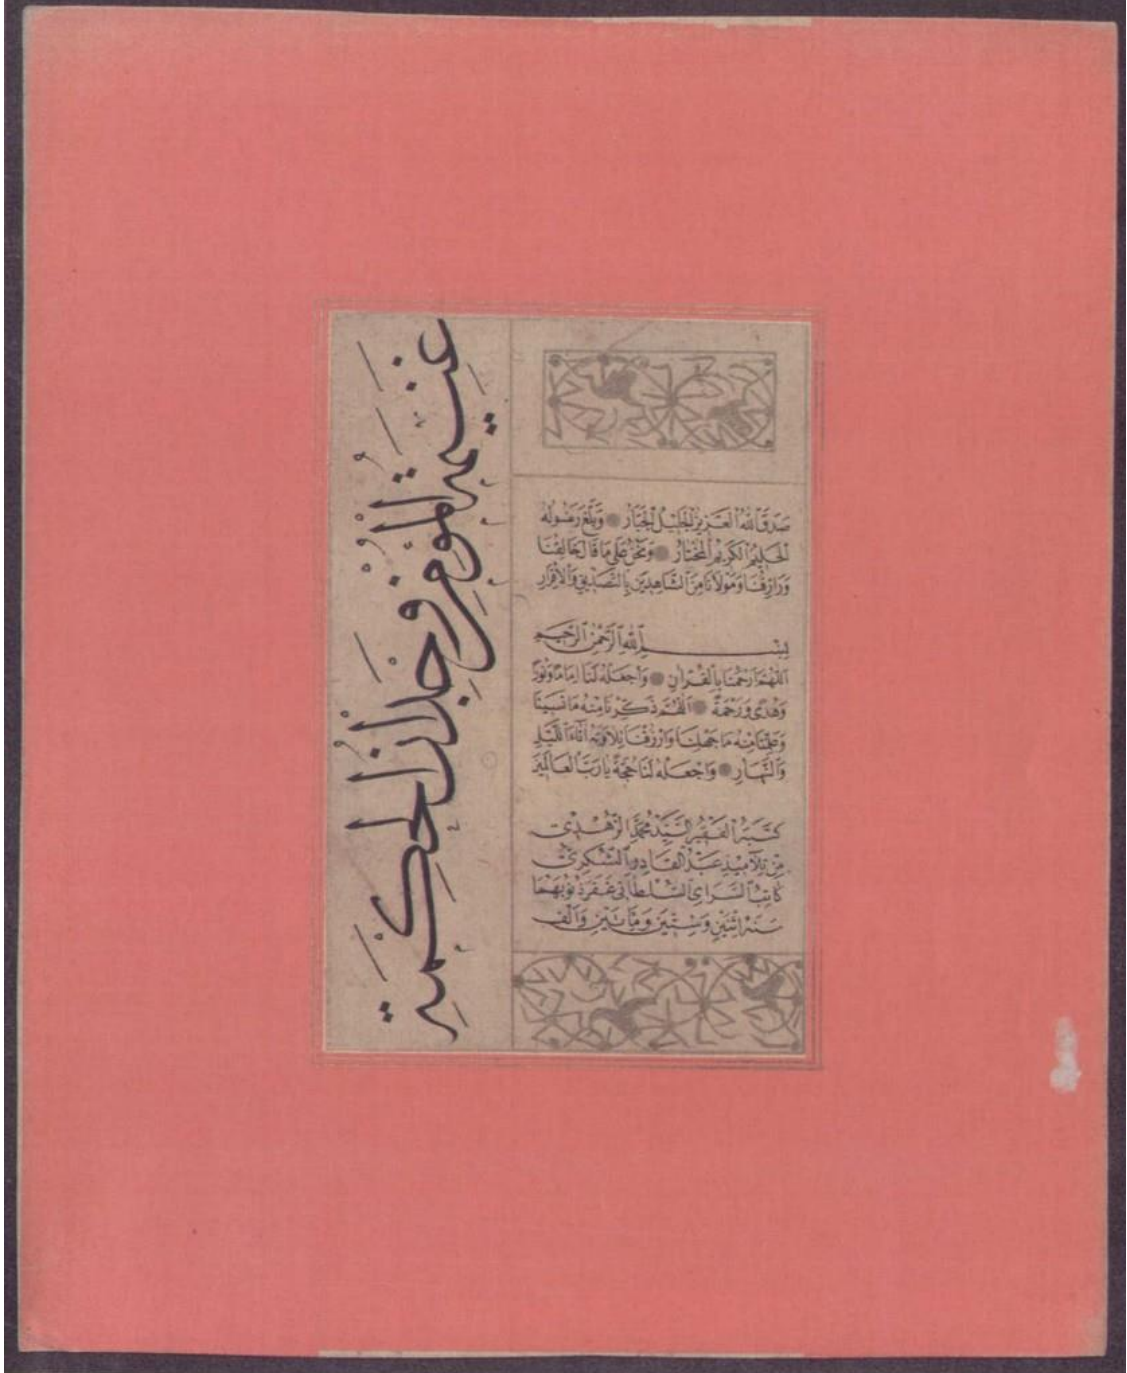 غنيمة المؤمن وجدان الحكمة
صَدَقَ اللهُ العَزيزُ الجَليلُ الجَبّارُ وَبَلَّغَ رَسُولُهُ
الحَليمُ الكَريمُ المُختارُ وَنَحنُ عَلى مَا قَالَ خَالِقُنَا
وَرَازِقُنَا وَمَوْلَانَا مِنَ الشَّاهِدِينَ بِالتَّصْدِيقِ وَالْاِقْرَارِ
بِسْمِ اللهِ الرَّحْمٰنِ الرَّحِيمِ
اَللّٰهُمَّ ارْحَمْنَا بِالقُرْاٰنِ وَاجْعَلْهُ لَنَا اِمَامًا وَنُورًا
وَهُدًى وَرَحْمَةً اَللّٰهُمَّ ذَكِّرْنَا مِنْهُ مَا نَسِينَا
وَعَلِّمْنَا مِنْهُ مَا جَهِلْنَا وَارْزُقْنَا تِلَاوَتَهُ اٰنَاءَ اللَّيْلِ
وَالنَّهَارِ وَاجْعَلْهُ لَنَا حُجَّةً يَا رَبَّ العَالَمِينَ
كَتَبَهُ الفَقِيرُ السَّيِّدُ مُحَمَّدُ الزُّهْدِي
مِنْ تَلَامِيذِ عَبْدُ القَادِرِ الشُّكْرِيِّ
كَاتِبُ السَّرَايِ السُّلْطَانِي غَفَرَ ذُنُوبَهُمَا
سَنَةَ اثْنَيْنِ وَسِتِّينَ وَمِائَتَيْنِ وَأَلْف